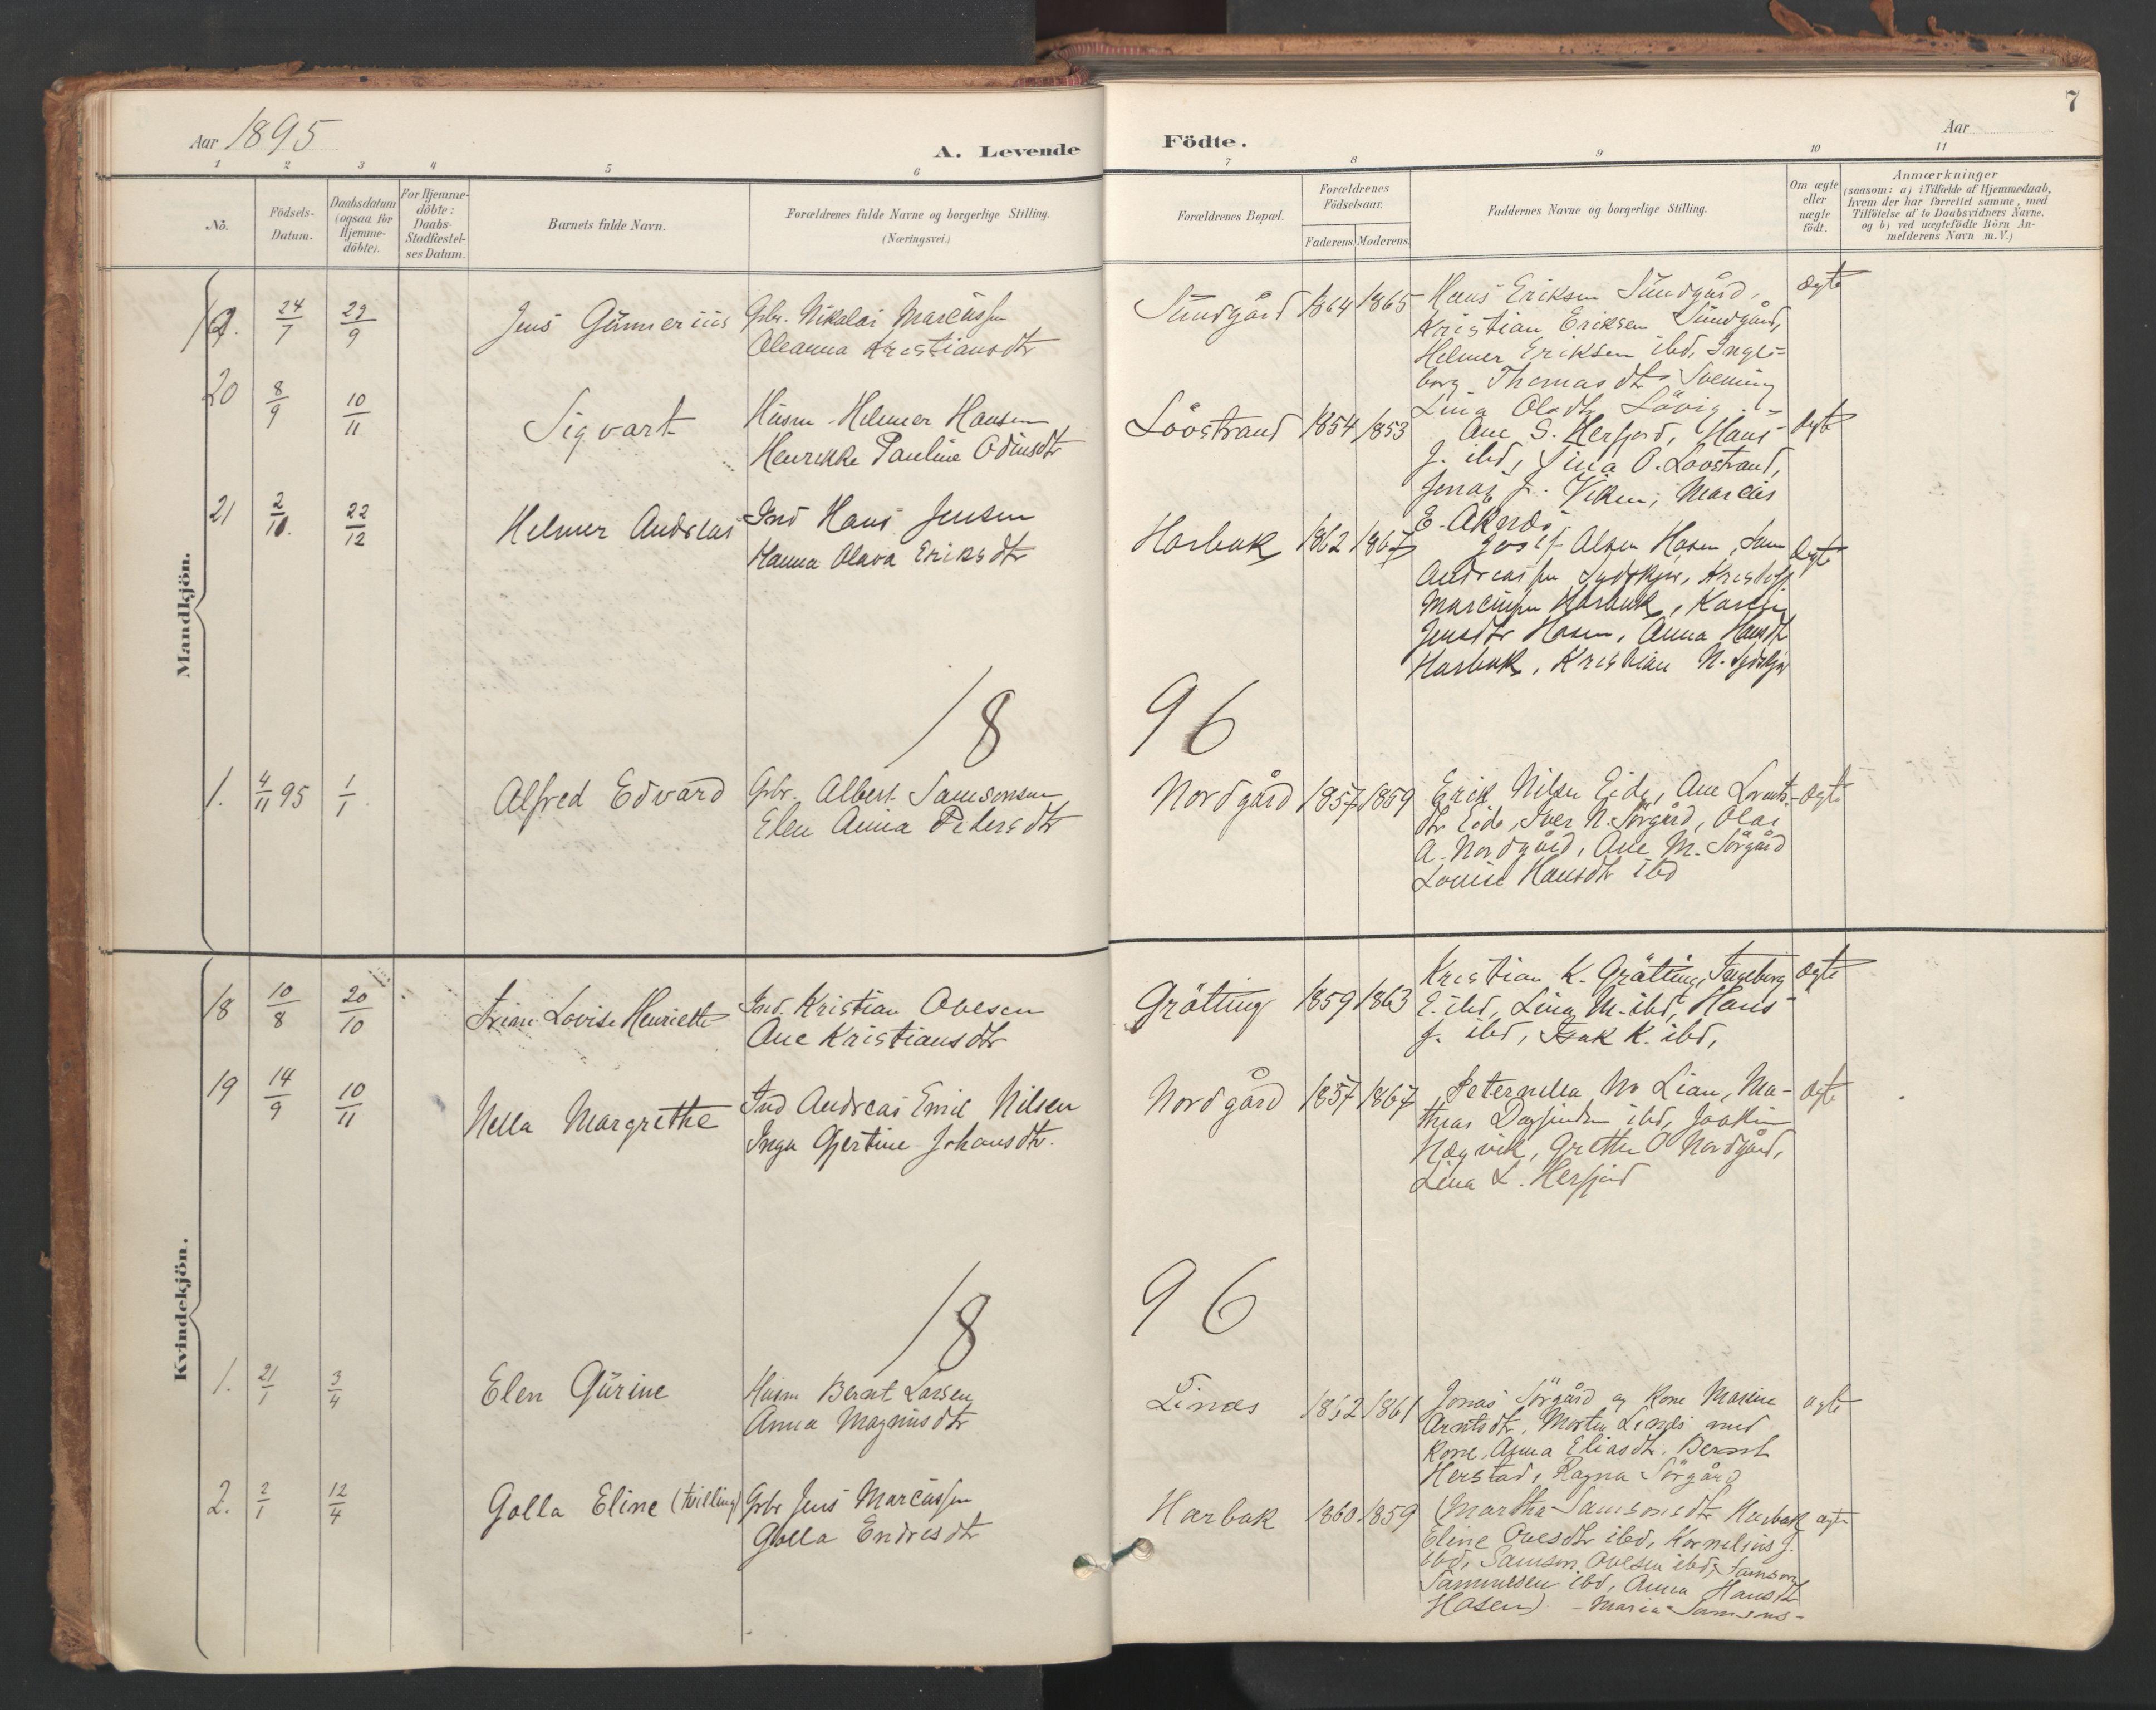 7
Aar 1895
A. Levende Födte.
Aar
1 2 3 4 5 6 7 8 9 10 11
No.
Födsels-
Datum.
Daabsdatum
(ogsaa for
Hjemme-
döbte).
For Hjemme-
döbte:
Daabs-
Stadfæstel-
ses Datum.
Barnets fulde Navn.
Forældrenes fulde Navne og borgerlige Stilling.
(Næringsvei.)
Forældrenes Bopæl.
Forældrenes
Födselsaar.
Faderens. Moderens.
Faddernes Navne og borgerlige Stilling.
Om ægte
eller
uægte
födt.
Anmærkninger
(saasom: a) i Tilfælde af Hjemmedaab,
hvem der har forrettet samme, med
Tilföielse af to Daabsvidners Navne.
og b) ved uægtefödte Börn An-
melderens Navn m.V.)
Mandkjön.
19. 24/7 29/9 Jens Günnerius
Gbr. Nikolai Marcussen
Oleanna Kristiansdtr
Sundgård 1864 1865
Hans Eriksen Sundgård,
Kristian Eriksen Sundgård,
Helmer Eriksen ibd, Inge-
borg Thomasdtr
Lina Olsdtr
ægte
20 8/9 10/11 Sigvart
Husm. Helmer Hansen
Henrikke Pauline Odinsdtr
Lövstrand 1854 1853
Ane S. Herfjord, Hans
J. ibd, O. Lovstrand,
Jonas J. Viken, Marcus
E.
ægte
21 2/10. 22/12 Helmer Andreas
Ind Hans Jensen
Hanna Olava Eriksdtr
Harbak 1862 1867
Josef Olsen Hosen,
Andreassen
Marcussen Harbak,
Jensdtr Hosen, Anna Hansdtr
Harbak, Kristian N.
ægte
18 96
1. 4/11 95 1/1 Alfred Edvard
Gbr. Albert Samsonsen
Elen Anna Pedersdtr
Nordgård 1857 1859
Erik Nilsen Eide, Ane Lorents-
dtr Eide, Iver N. Sörgård, Olai
A. Nordgård, Ane M. Sörgård
Louise Hansdtr ibd
ægte
Kvindekjön.
18 10/8 20/10 Lovise Henriette
Ind. Kristian Ovesen
Ane Kristiansdtr
Grötting 1859 1863
Kristian K. Grötting, Ingeborg
E. ibd, Lina M. ibd, Hans
J. ibd, Isak K. ibd,
ægte
19 14/9 10/11 Nella Margrethe
Ind Andreas Emil Nilsen
Inga Gjertine Johansdtr.
Nordgård 1857 1867
Peternella M. Lian, Ma-
thias ibd, Joakim
Nordgård,
Lina L. Herfjord
ægte
18 96
1. 21/1 3/4 Elen Gürine
Husm Bernt Larsen
Anna Magnusdtr
Linæs 1862 1861
Jonas Sörgård og Kone Marine
Arntsdtr, Morten Linæs med
Kone, Anna Eliasdtr. Bernt
Herstad, Ragna Sörgård
ægte
2. 2/1 12/4 Golla Eline (tvilling)
Gbr Jens Marcussen
Golla Endresdtr
Harbak 1860 1859
(Martha Samsonsdtr Harbak
Eline Ovesdtr ibd, Kornelius J.
ibd, Samson Ovesen ibd, Samson
ibd, Anna Hansdtr
Hosen). - Maria Samsons-
ægte